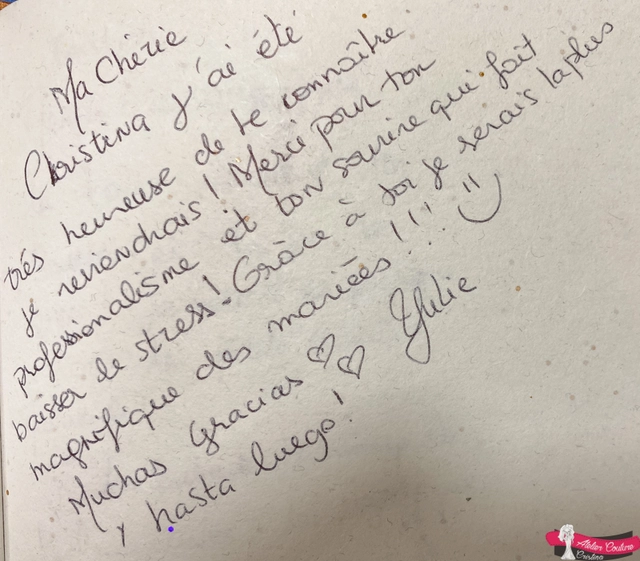 Ma Chérie
Christina J'ai été
très heureuse de te connaître
je reviendrais ! Merci pour ton
professionalisme et ton sourire qui fait
baisser le stress ! Grâce à toi je serais la plus
magnifique des mariées !!!
Muchas Gracias Yulie
y hasta luego !
Atelier Couture
Cristina